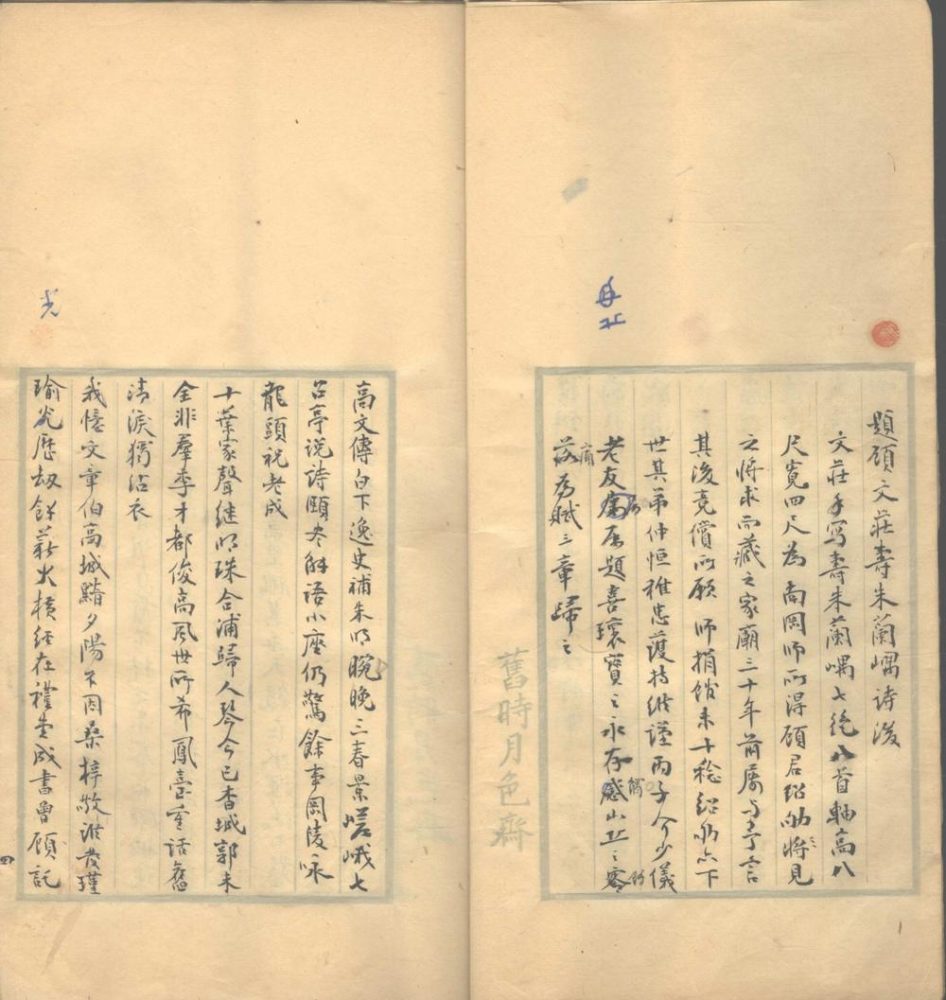 題顧文莊壽朱蘭嵎詩後
文莊手寫壽朱蘭嵎七絕八首軸高八
尺寬四尺為南岡師所得顧君紹將見
之將求而藏之家廟三十年前屢與予言
其後竟償所願師捐館未十稔紹亦下
世其弟仲恒雅忠護持維謹丙子今少儀
老友屬題喜瓌寶之永存感山丘之零
落痛為賦三章歸之
舊時月色齋
高文傳白下逸史補朱明晼晚三春景嵯峨七
召亭說詩頤冬解語小座仍驚餘事岡陵咏
龍頭祝老成
十葉家聲繼明珠合浦歸人琴今已杳城郭未
全非羣季才都俊高風世所希鳳臺重話舊
清淚獨沾衣
我憶文章伯高城黯夕陽不因桑梓敬誰發瑾
瑜光歷劫餘薪火橫經在禮堂成書曾顧託
光